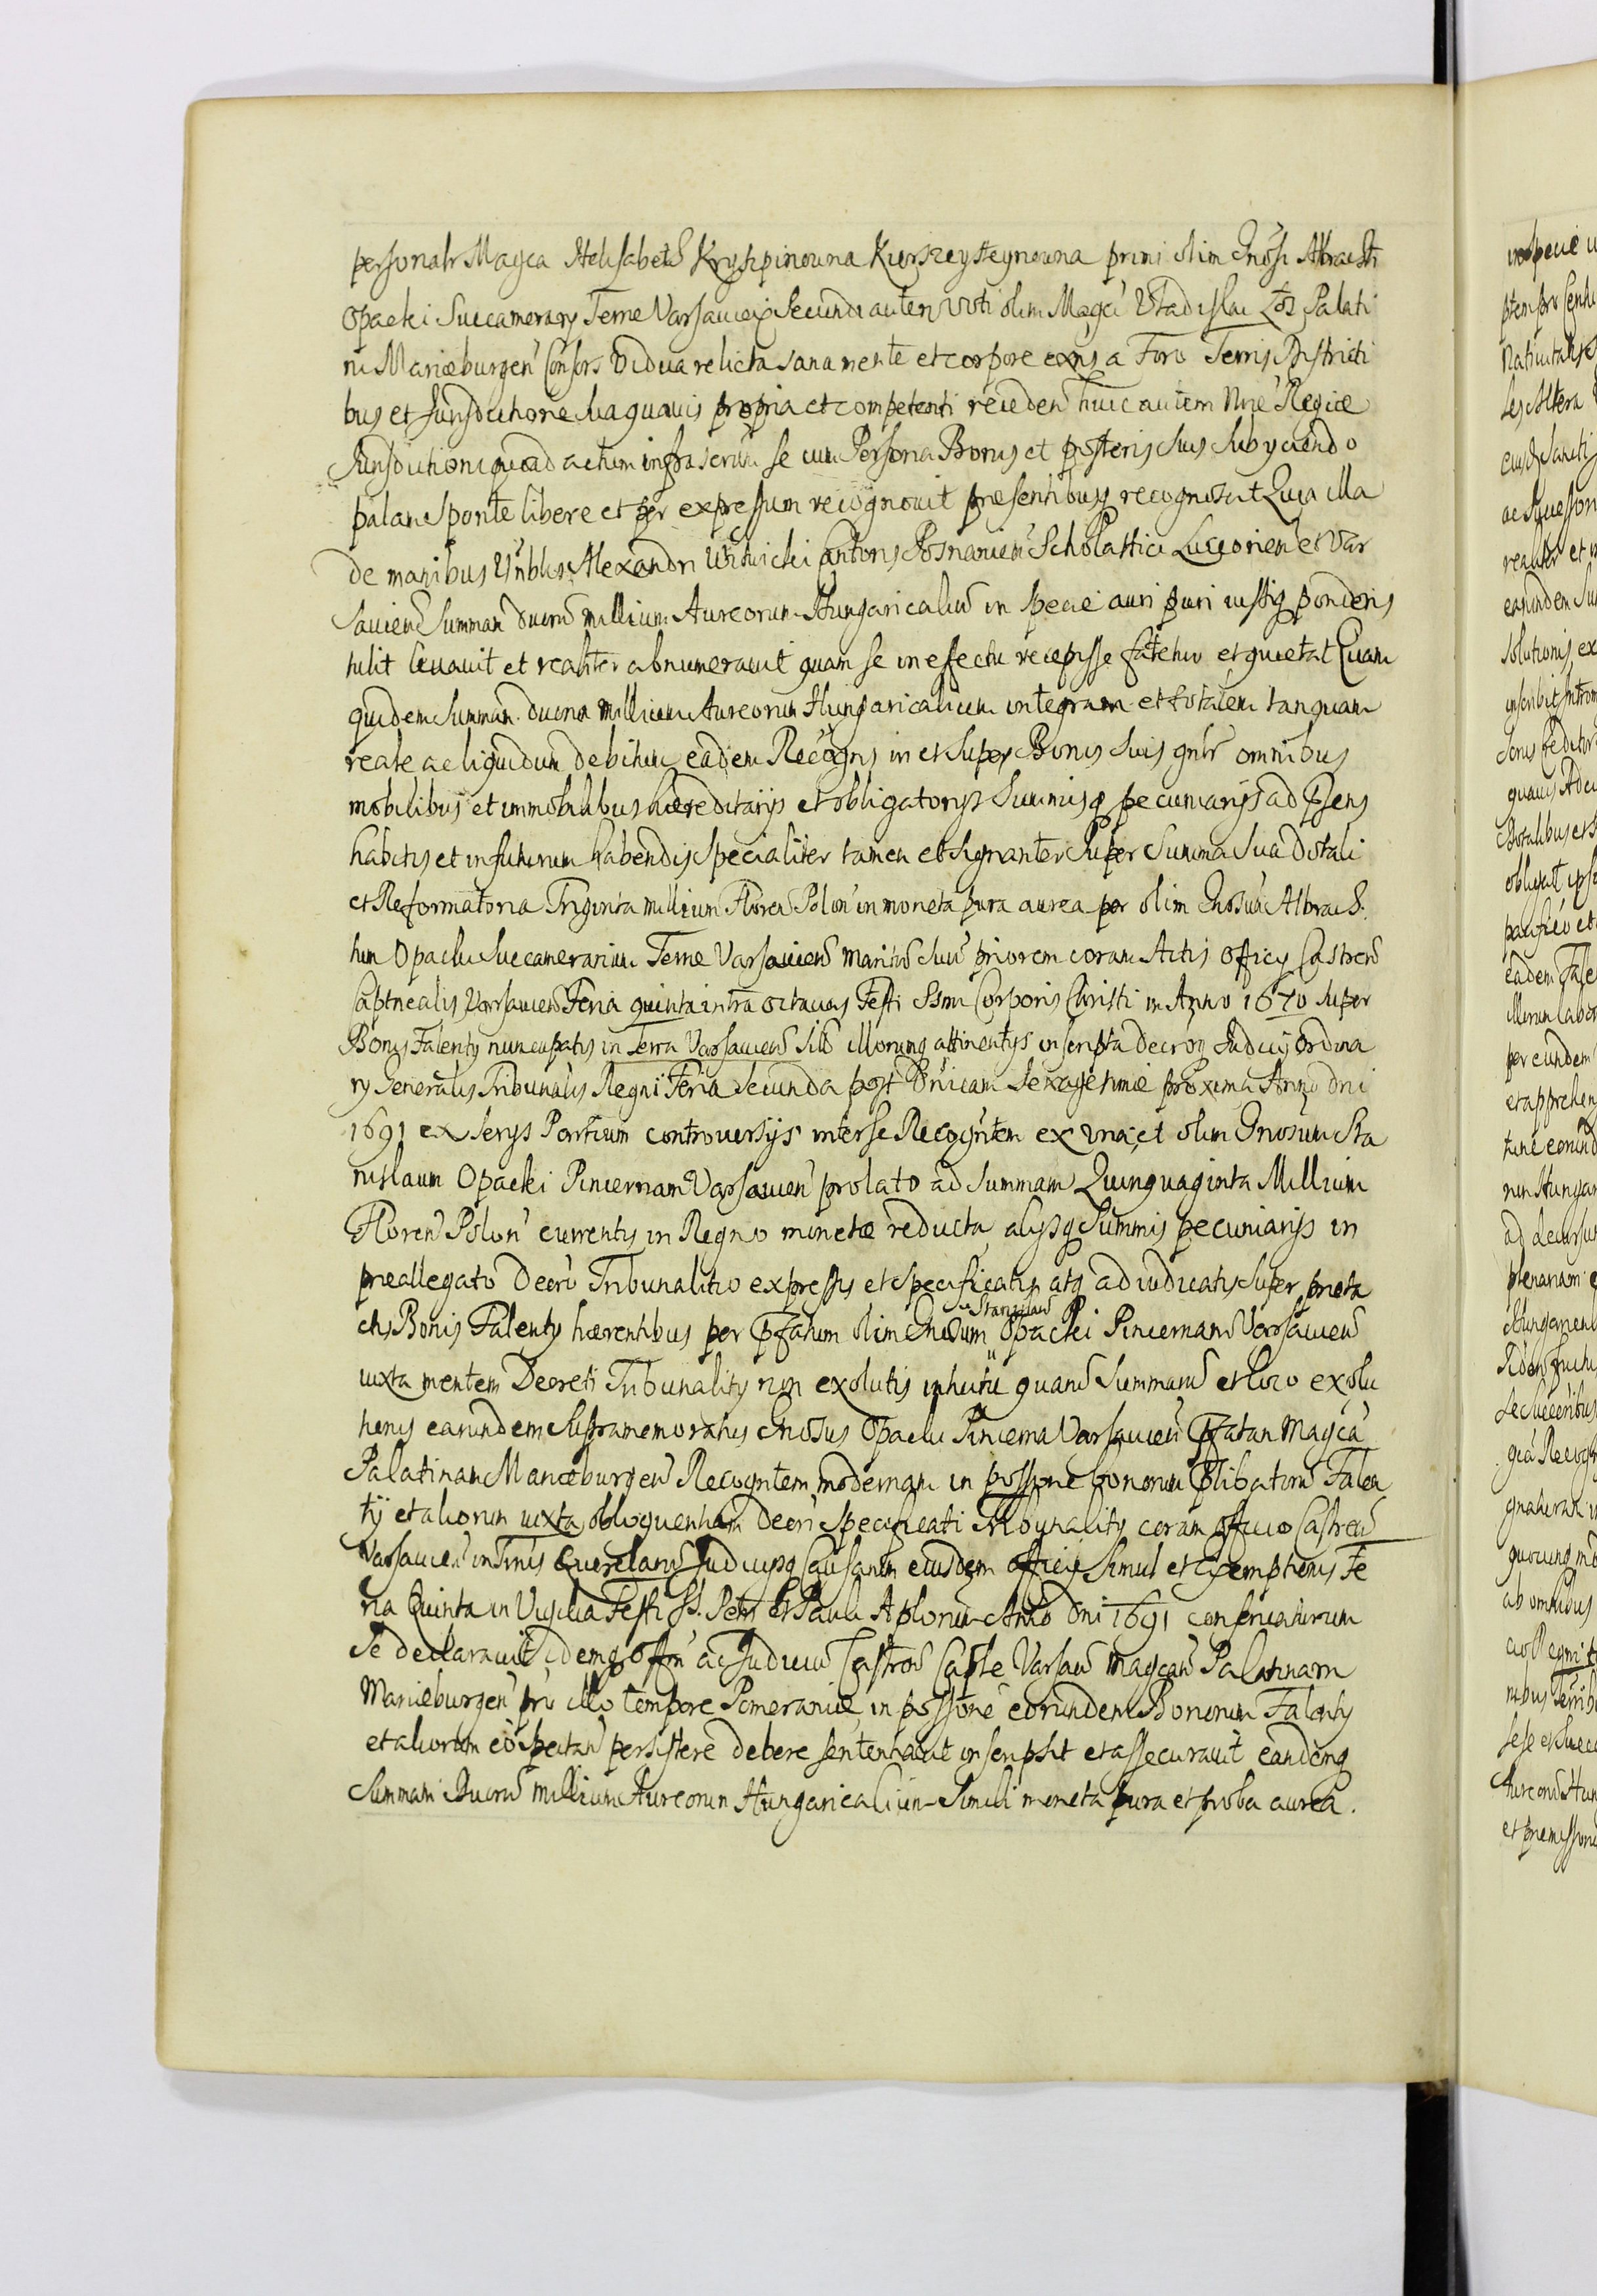 personalr Magca Helisabeth Kryszpinowna Kierszeysteynowna primi olim Gnosi Abrach
Opacki Succamerary Terræ Varsavien Secundi autem Voti olim Magci Vladislai Łoś Palati
ni Mariæburgen Consors Vidua relicta sana mente et corpore exns a Foro Terris Districti
bus et Jurisdictione sua quavis propria et competenti receden huic autem Nræ Regiæ
Jurisdictioni quoad actum infrascrum se cum Persona Bonis et posteris suis subyciendo
palam sponte libere et per expressum recognovit præsentibusq recognoscit Quia illa
de manibus Vnblis Alexandri Wychicki Cantoris Posnanien Scholastici Luceorien et Var
savien Summam duorum millium Aureorum Hungaricalium in specie auri puri iustiq ponderis
tulit levavit et realiter abnumeravit quam se in effectu recepisse fatetur et quietat Quam
quidem Summam duorum millium Aureorum Hungaricalium integram et totalem tanquam
reale ac liquidum debitum eadem Recogns in et super Bonis suis gnlr omnibus
mobilibus et immobilibus hæreditarijs et obligatorijs Summisq pecuniarijs ad præsens
habitis et in futurum habendis specialiter tamen et signanter super Summa sua dotali
et Reformatoria Triginta millium Floren Polon in moneta pura aurea per olim Gnosum Abrah
hm Opacki Succamerarium Terræ Varsavien maritum suum priorem coram Actis Officy Castren
Captnealis Varsavien Feria quinta intra octavas Festi Ssmi Corporis Christi in Anno 1670 super
Bonis Falenty nuncupatis in Terra Varsavien sitis illorumq attinentijs inscripta decroq Judicij Ordina
ry Generalis Tribunalis Regni Feria Secunda post Dnicam Sexagesimæ proxima Anno Dni
1691 ex serys Partium controversijs inter se Recognitem ex una, et olim Gnosum Sta
nislaum Opacki Pincernam Varsavien prolato ad summam Quinquaginta Millium
Floren Polon currentis in Regno monetæ reducta alijsq Summis pecuniarijs in
præallegato Decro Tribunalitio expressis et specificatis atq adiudicatis super præta
ctis Bonis Falenty hærentibus per Pfatum olim Gnosum Stanislaum Opacki Pincernam Varsavien
iuxta mentem Decreti Tribunality non exolutis intuitu quarum Summarum et loco exolu
tionis earundem supramemoratus Gnosus Opacki Pincerna Varsavien Pfatam Magcam
Palatinam Mariæburgen Recogntem modernam in possione bonorum Plibatorum Falen
ty et aliorum iuxta obloquentiam Decri specificati Tribunality coram officio Castren
Varsavien in Tmis Querelarum Judicijsq Causarum eiusdem officij simul et Exemptionis Fe
ria Quinta in Vigilia Festi SS. Petri et Pauli Aplorum Anno Dni 1691 conservaturum
se declaravit idemq Offm ac Judicium Castren Captle Varsavien Magcam Palatinam
Mariæburgen pro illo tempore Pomeraniæ in possione eorundem Bonorum Falenty
et aliorum eo spectan persistere debere sententiavit inscripsit et assecuravit eandemq
Summam Duorum millium Aureorum Hungaricalium simili moneta pura et proba aurea.